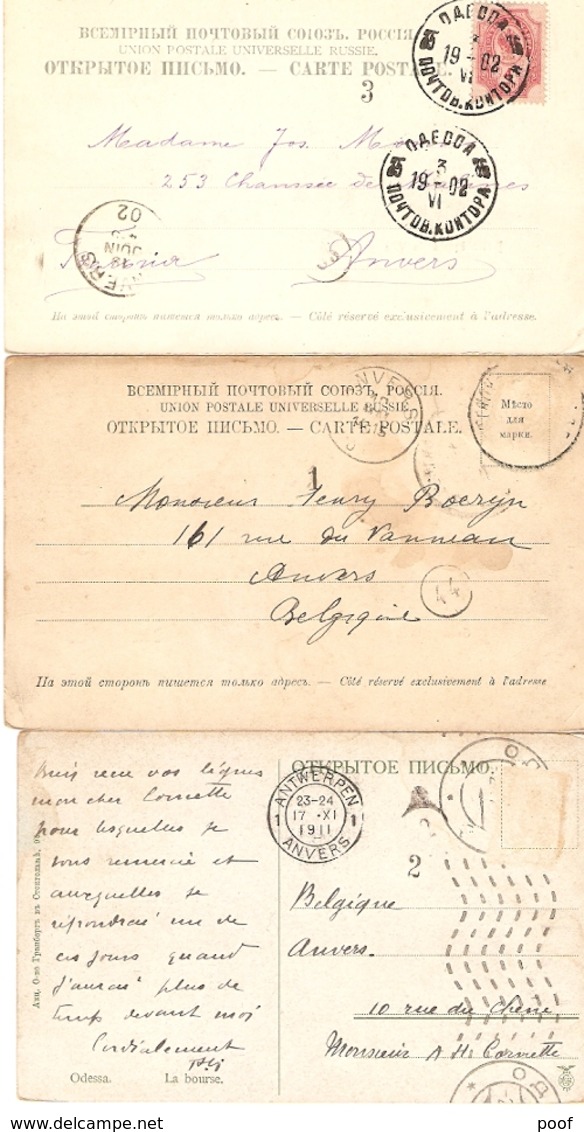 ВСЕМІРНЫЙ ПОЧТОВЫЙ СОЮЗЪ. РОССІЯ.
UNION POSTALE UNIVERSELLE RUSSIE.
ОТКРЫТОЕ ПИСЬМО. — CARTE POSTALE.
ОДЕССА
3
19 - 02
VI
ПОЧТОВ. КОНТОРА
3
Madame Jos.
253 Chaussée de
ОДЕССА
3
19 - 02
VI
ПОЧТОВ. КОНТОРА
ANVERS
JUIN
02
Anvers
На этой сторонѣ пишется только адресъ. — Côté réservé exclusivement à l'adresse.
ВСЕМІРНЫЙ ПОЧТОВЫЙ СОЮЗЪ, РОССІЯ.
UNION POSTALE UNIVERSELLE RUSSIE.
ОТКРЫТОЕ ПИСЬМО. — CARTE POSTALE.
ANVERS
Мѣсто
для
марки.
1
Monsieur Henry
161 rue du Vanneau
Anvers
44
Belgique
На этой сторонѣ пишется только адресъ. — Côté réservé exclusivement à l'adresse
ОТКРЫТОЕ ПИСЬМО.
reçu vos lignes
mon cher Cornette
pour lesquelles je
vous remercie et
auxquelles je
répondrai un de
ces jours quand
j'aurai plus de
temps devant moi
Cordialement
ANTWERPEN
1 23-24 1
17 XI
1911
ANVERS
2
Belgique
Anvers.
10 rue du Chêne
Monsieur A H Cornette
Акц. О-во Гранбергъ въ Стокгольмѣ.
Odessa. La bourse.
poof